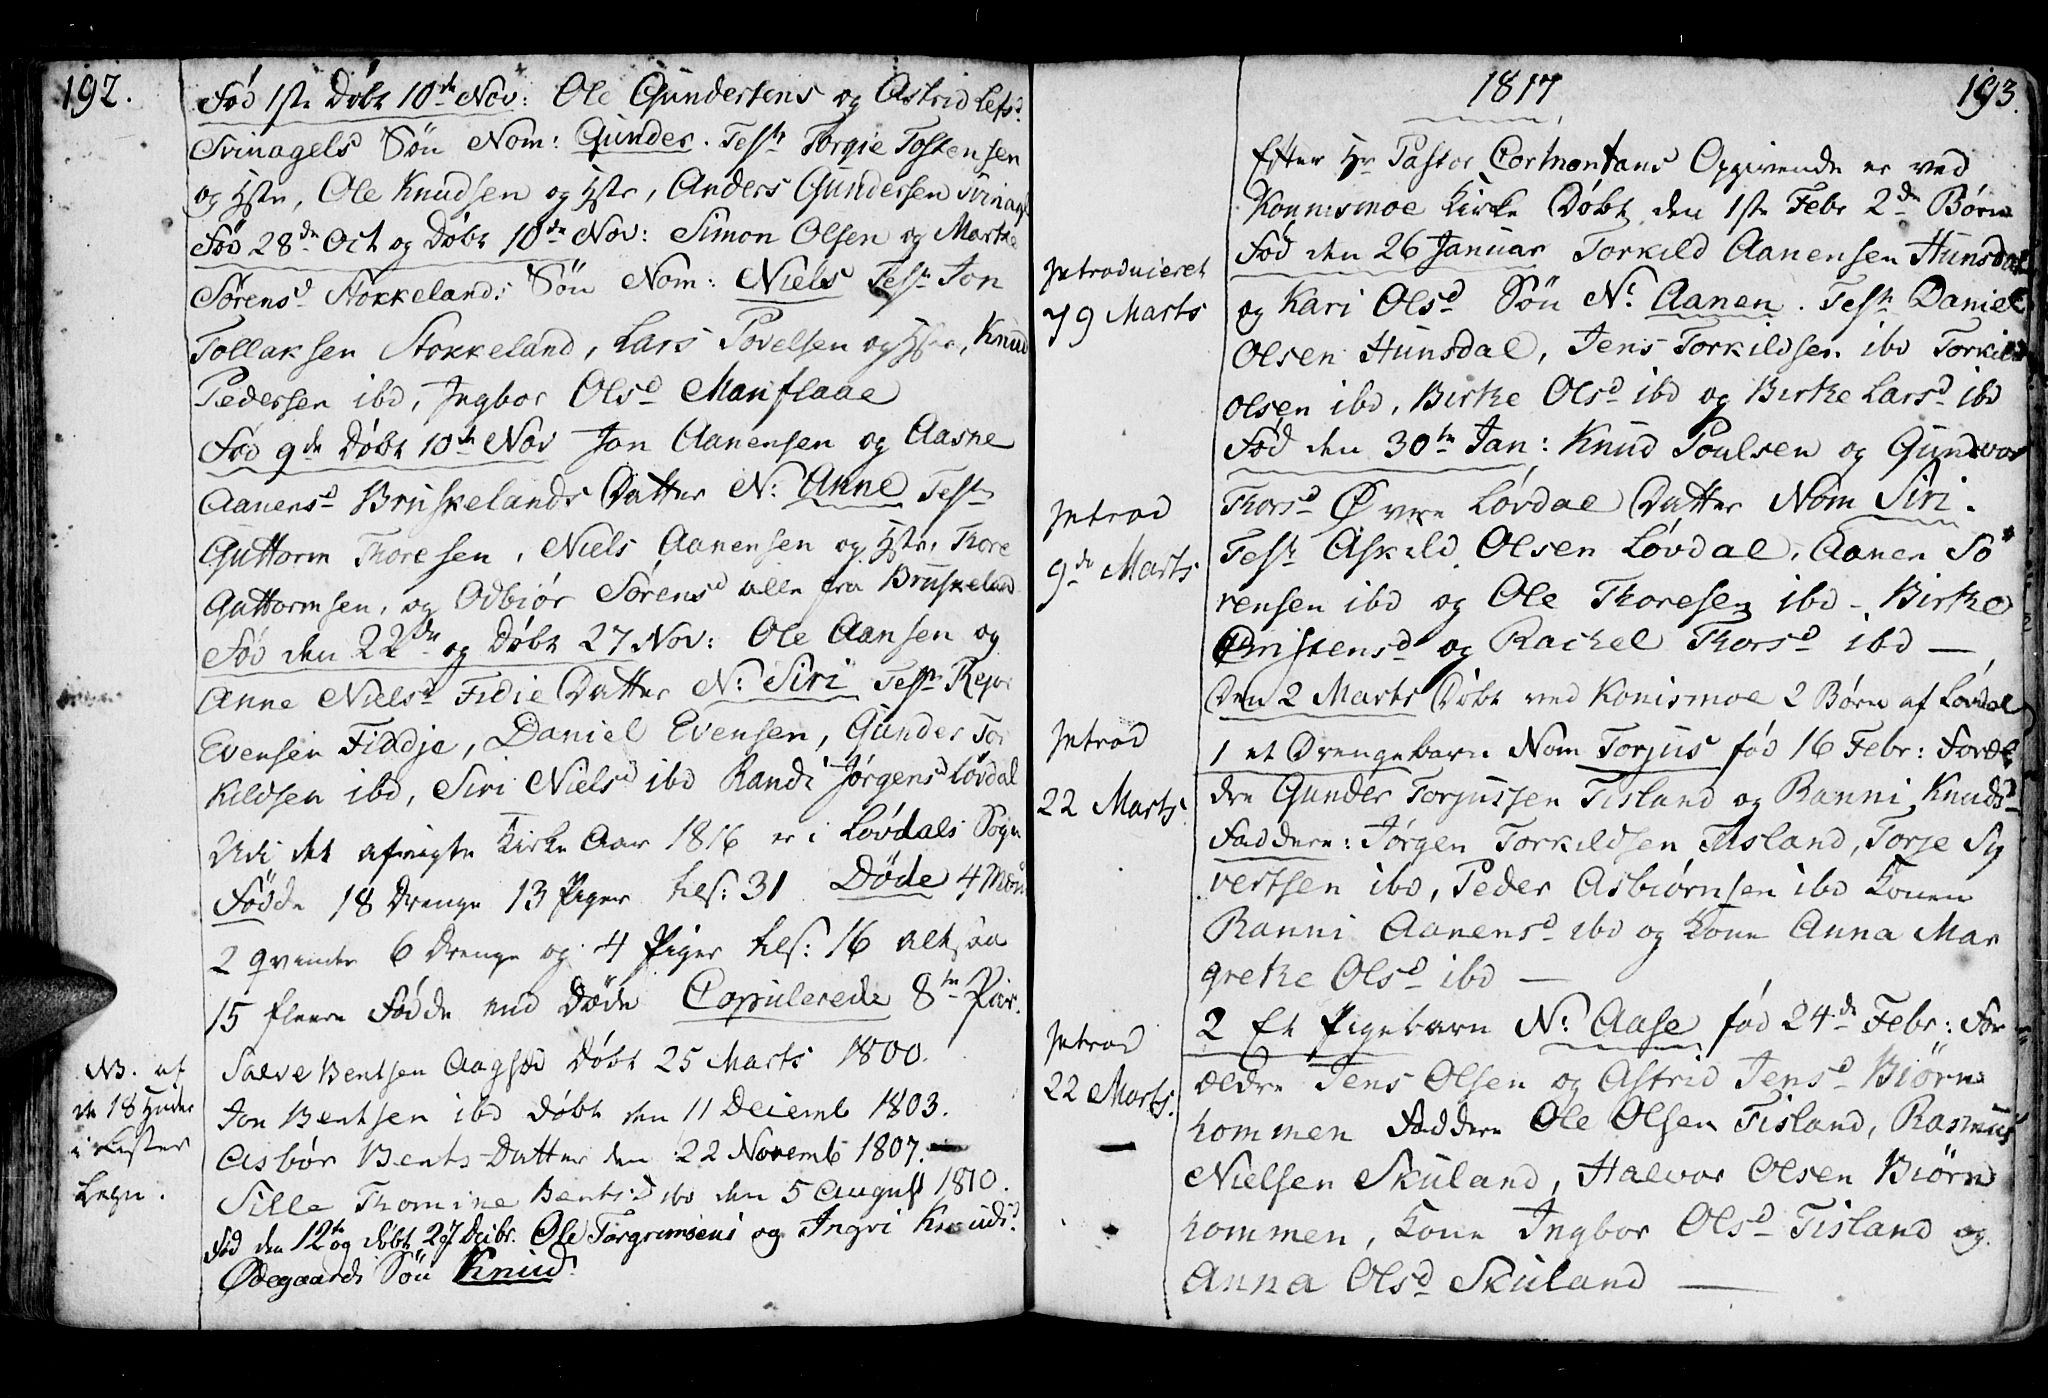 192.
Fød 1ste Døbt 10de Nov: Ole Gundersens og Astrid Lefsd
Svinagels Søn Nom: Gunder. Test Torgie Tostensen
og Hstr, Ole Knudsen og Hstr, Anders Gundersen Svinag
Fød 28de Oct og Døbt 10de Nov: Simon Olsen og Marthe
Sørensd Stokkelands Søn Nom: Niels Test Jon
Tollaksen Stokkeland, Lars Povelsen og Hstr, Knud
Pedersen ibd, Ingbor Olsd Manflaae
Fød 9de Døbt 10de Nov Jon Aanensen og Aasne
Aanensd Bruskelands Datter N: Anne Test
Guttorm Thoresen, Niels Aanensen og Hstr, Thore
Guttormsen, og Odbiør Sørensd alle fra Bruskeland
Fød den 22de og Døbt 27 Nov: Ole Aansen og
Anne Nielsd Fidie Datter N: Siri Test Rejer
Evensen Fiddje, Daniel Evensen, Gunder Tor
kildsen ibd, Siri Nielsd ibd Randi Jørgensd Løvdal
Udi det afvigte Kirke Aar 1816 er i Løvdals Sogn
Fødde 18 Drenge 13 Piger tils: 31 Døde 4 Mænd
2 Qvinder 6 Drenge og 4 Piger tils: 16 altsaa
15 fleere Fødde end Døde Copulerede 8te Par.
NB. af
de 18
i Lister
Legn.
Salve Bentsen Aagsæd Døbt 25 Marts 1800.
Jon Bentsen ibd Døbt den 11 Decemb 1803.
Asbør Bents Datter den 22 Novemb 1807.
Sille Thomine Bentsd ibd den 5 August 1810.
Fød den 12te og døbt 27 Decbr. Ole Torgrimsens og Ingri Knudsd
Ødegaards Søn Knud.
1817
193.
Efter Hr Pastor Cortmontans Opgivende er ved
Konnismoe Kirke Døbt den 1ste Febr 2de Børn
Introducieret
19 Marts
Fød den 26 Januar Torkild Aanensen Hunsdal
og Kari Olsd Søn N: Aanen. Test Daniel
Olsen Hunsdal, Jens Torkildsen ibd Torkild
Olsen ibd, Birthe Olsd ibd og Birthe Larsd ibd
Fød den 30te Jan: Knud Poulsen og Gundvor
Introd
9de Marts
Thorsd Øvre Løvdal Datter Nom Siri.
Test Askild Olsen Løvdal, Aanen Sø
rensen ibd og Ole Thoresen ibd - Birthe
Christensd og Rachel Thorsd ibd —
Den 2 Marts Døbt ved Konismoe 2 Børn af Løvdal
Introd
22 Marts
1 et Drengebarn Nom Torjus fød 16 Febr: Foræl
dre Gunder Torjussen Tisland og Ranni Knudsd
Faddere: Jørgen Torkildsen Tisland, Torje Sy
vertsen ibd, Peder Asbiørnsen ibd Konen
Ranni Aanensd ibd og Kone Anna Mar
grethe Olsd ibd —
Introd
22 Marts.
2 Et Pigebarn N: Aase fød 24de Febr: For
ældre Jens Olsen og Astrid Jensd Biørn
kommen Faddere Ole Olsen Tisland, Rasmus
Nielsen Skuland, Halvor Olsen Biørn
kommen, Kone Ingbor Olsd Tisland og
Anna Olsd Skuland —